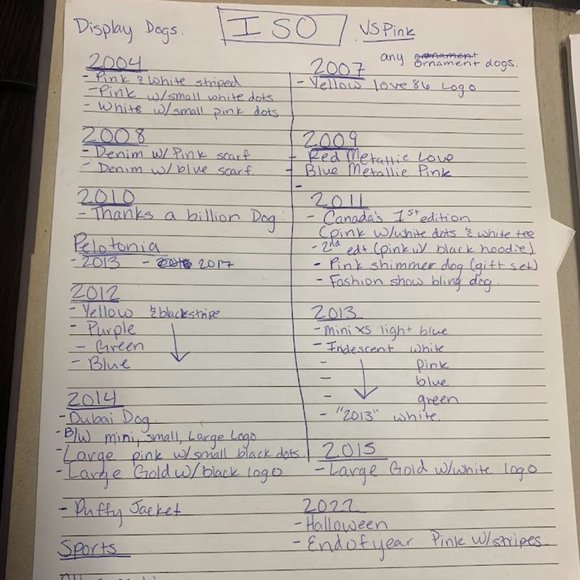 Display Dogs. ISO VS Pink
any ornament dogs.
2004
- Pink & white striped
- Pink w/small white dots
- White w/small pink dots
2007
- Yellow love 86 Logo
2008
- Denim w/Pink scarf
- Denim w/blue scarf
2009
- Red Metallic Love
- Blue Metallic Pink
-
2010
- Thanks a billion Dog.
2011
- Canada's 1st edition
(pink w/white dots & white tee
- 2nd edt (pink w/ black hoodie)
- Pink shimmer dog (gift set)
- Fashion show bling dog.
Pelotonia
- 2013 - 2017
2012
- Yellow & blackstripe
- Purple
- Green
- Blue
2013
- mini xs light blue
- Iridescent white
- pink
- blue
- green
- "2013" white.
2014
- Dubai Dog.
- B/W mini, small, Large Logo
- Large pink w/small black dots
- Large Gold w/black logo
2015
- Large Gold w/white logo
- Puffy Jacket
2022
- Halloween
- End of year Pink w/stripes.
Sports